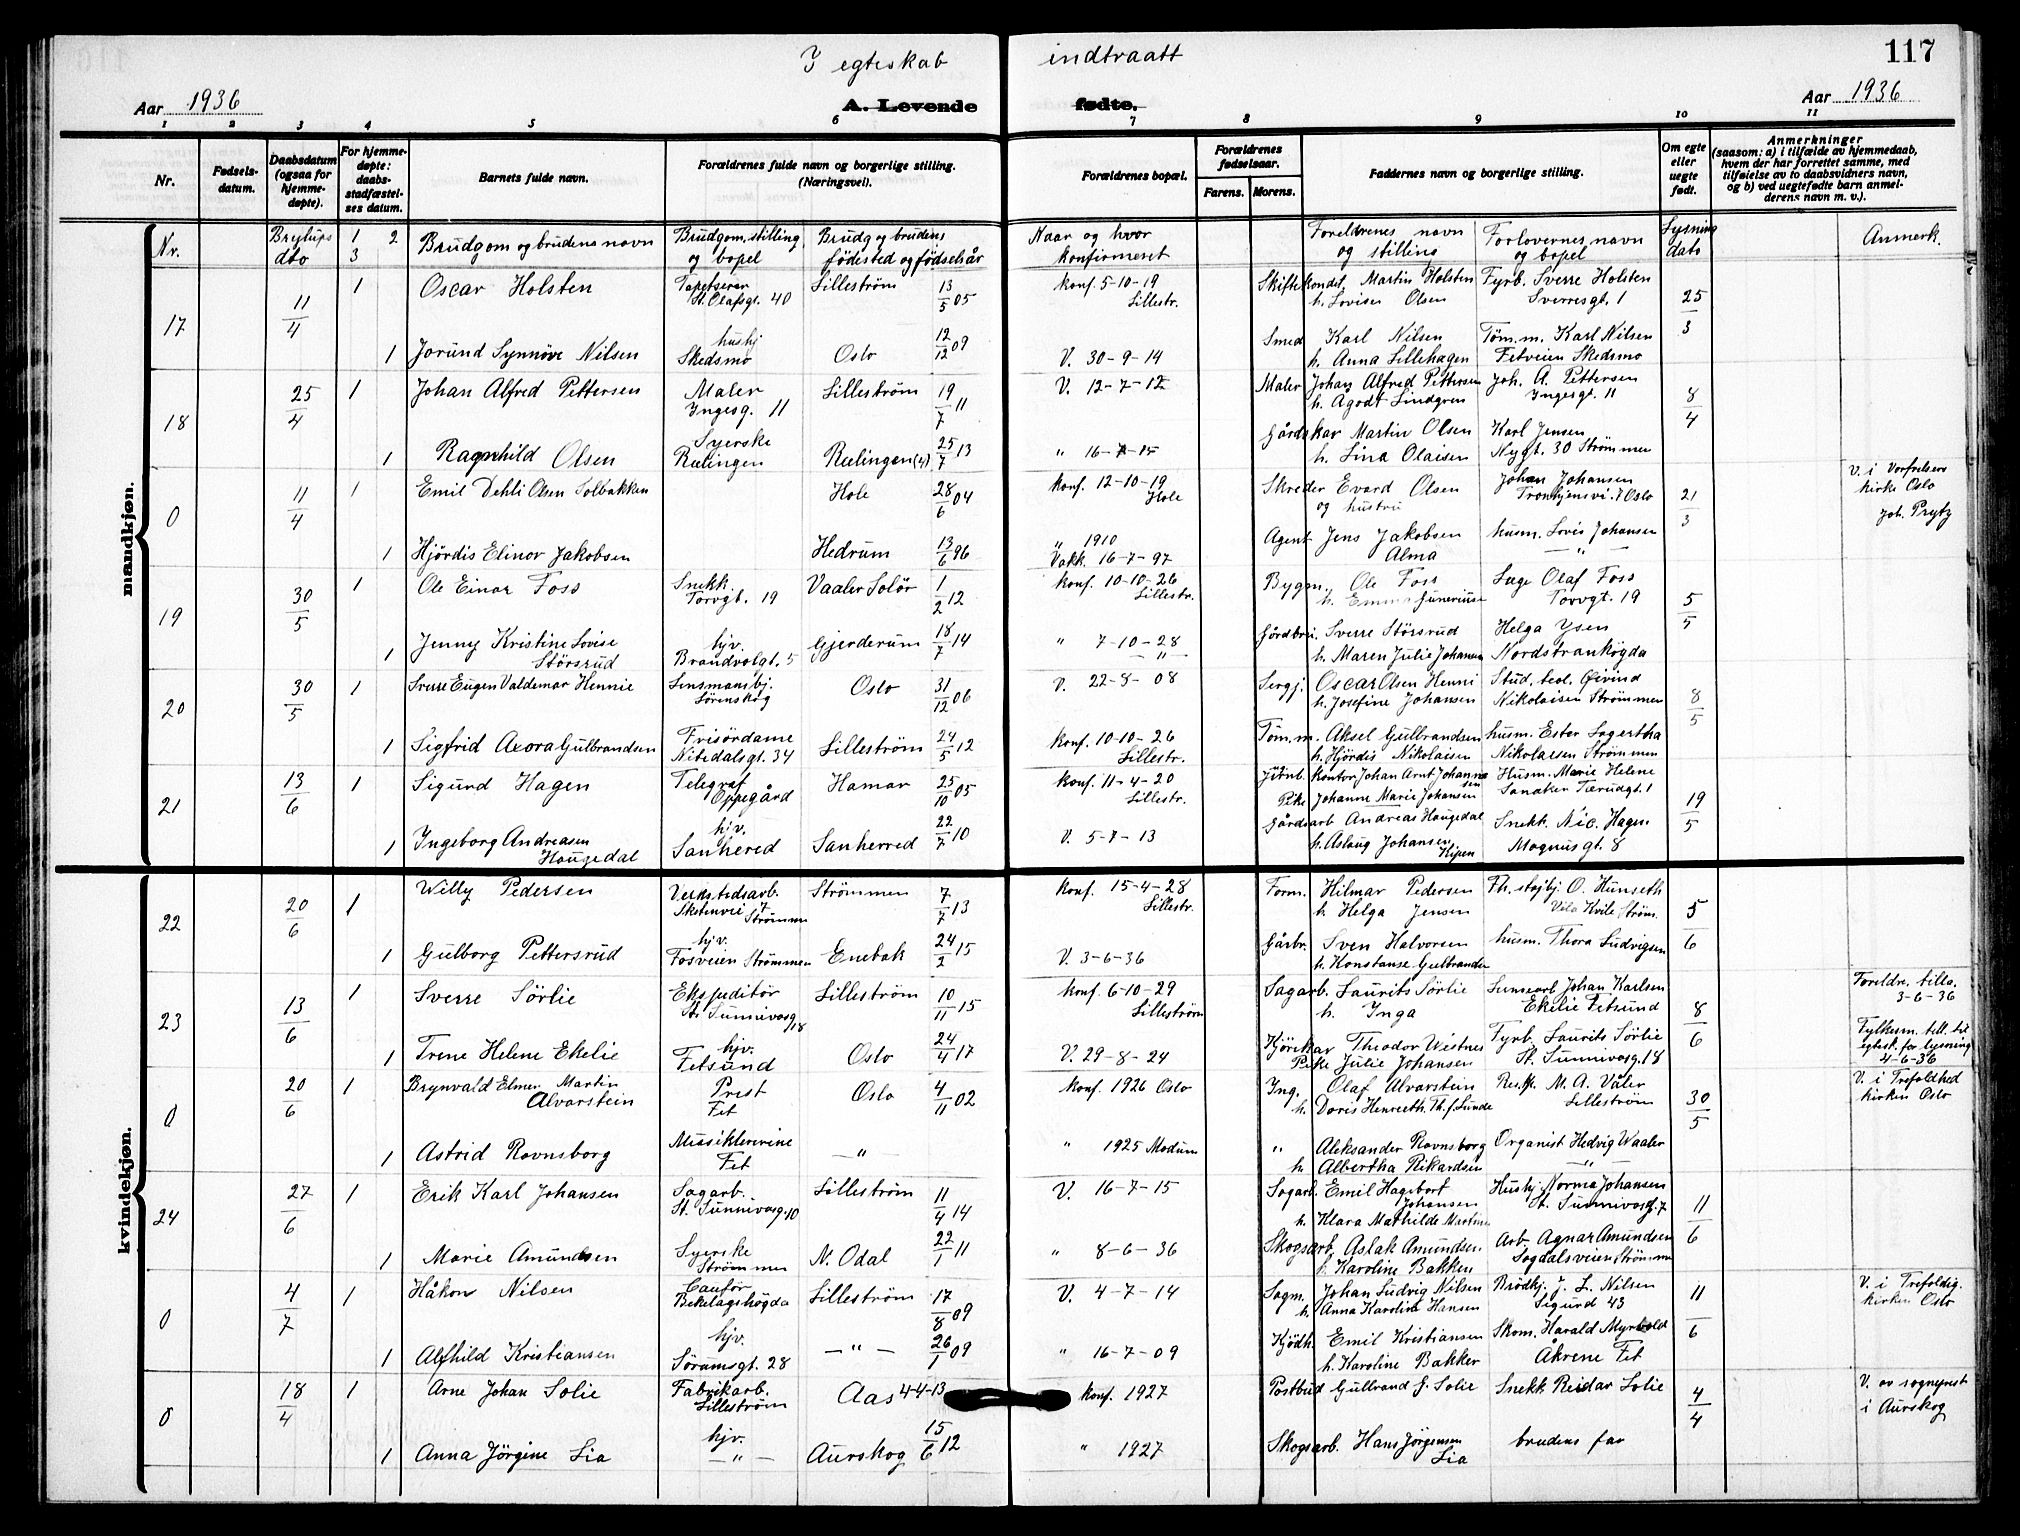 I egteskab indtraatt
117
Aar 1936
A. Levende fødte.
Aar 1936
1 2 3 4 5 6 7 8 9 10 11
Nr.
Fødsels-datum.
Daabsdatum (ogsaa for hjemme-døpte).
For hjemme-døpte: daabs-stadfæstel-ses datum.
Barnets fulde navn.
Forældrenes fulde navn og borgerlige stilling. (Næringsvei).
Forældrenes bopæl.
Forældrenes fødselsaar.
Farens. Morens.
Faddernes navn og borgerlige stilling.
Om egte eller uegte født.
Anmerkninger
(saasom: a) i tilfælde av hjemmedaab, hvem der har forrettet samme, med tilføielse av to daabsvidners navn, og b) ved uegtefødte barn anmel-derens navn m. v.).
mandkjøn.
kvindekjøn.
Nr. Brylups dto 1 2 3 Brudgom og brudens navn Brudgom, stilling og bopel Brudg og brudens fødested og fødselsår Naar og hvor konfirmeret Foreldrenes navn og stilling Forlovernes navn og bopel Lysning dato Anmerk.
17 11/4 1 Oscar Holsten Tapetserer St. Olafsgt. 40 Lilleström 13/5 05 Konf. 5-10-19 Lillestr. Martin Holsten h. Lovise Olsen Fyrb. Sverre Holsten Sverresgt. 1 25/3
1 Jorund Synnöve Nilsen hushj Skedsmo Oslo 12/12 09 V. 30-9-14 Smed Karl Nilsen h. Anna Lillehagen Töm. m. Karl Nilsen Fetveien Skedsmo
18 25/4 1 Johan Alfred Pettersen Maler Ingesg. 11 Lilleström 19/7 11 V. 12-7-12 Maler Johan Alfred Pettersen h. Agodt Lindgren Joh. A. Pettersen Ingesgt. 11 8/4
1 Ragnhild Olsen Syerske Rælingen Rælingen 25/7 13 " 16-7-15 Gårdskar Martin Olsen h. Lina Olaisen Karl Jensen Nygt. 30 Strömmen
0 11/4 1 Emil Dehli Olsen Solbakken Hole 28/6 04 Konf. 12-10-19 Hole Skreder Evard Olsen og hustru Johan Johansen 21/3 V. i Vorfrelsers kirke Oslo Joh. Prytz
1 Hjördis Elinor Jakobsen Hedrum 13/6 96 " 1910 Vakk. 16-7-97 Agent Jens Jakobsen Alma husm. Lovis Johansen — " —
19 30/5 1 Ole Einar Foss Snekk. Torvgt. 19 Vaaler Solör 1/2 12 Konf. 10-10-26 Lillestr. Bygm. Ole Foss Olaf Foss Torvgt. 19 5/5
1 Jenny Kristine Lovise Störsrud hjv. Brandvolgt. 5 Gjerderum 18/7 14 " 7-10-28 — " — Gårdbr. Sverre Störsrud h. Maren Julie Johansen Helga Ysen
20 30/5 1 Sverre Eugen Valdemar Hennie Lensmansbj. Lörenskog Oslo 31/12 06 V. 22-8-08 Sergj. Oscar Olsen Henni h. Josefine Johansen Stud. teol. Öivind Nikolaisen Strömmen 8/5
1 Sigfrid Axora Gulbrandsen Frisördame Nitedalsgt. 34 Lilleström 24/5 12 Konf. 10-10-26 Lillestr. Töm. m. Aksel Gulbrandsen h. Hjördis Nikolaisen husm. Ester Nikolaesen Strömmen
21 13/6 1 Sigurd Hagen Telegraf Oppegård Hamar 25/10 05 Konf. 11-4-20 Lillestr. Jernb. kontor Johan Arnt Johannessen Pike Johanne Marie Johansen Husm. Marie Helene Sanaker Tærudgt. 1 19/5
1 Ingeborg Andreasen Haugedal hjv. Sanhered Sanherred 22/7 10 V. 5-7-13 Gårdsarb Andreas Haugedal h. Aslaug Johansen Kipen Snekk. Nic. Hagen Magnusgt. 8
22 20/6 1 Willy Pedersen Verkstedsarb. Strömmen Strömmen 7/7 13 Konf. 15-4-28 Lillestr. Form. Hilmar Pedersen h. Helga Jensen O. Hunseth Villa Kvile Ström. 5/6
1 Gulborg Pettersrud hjv. Fosveien Strömmen Enebak 24/2 15 V. 3-6-36 Gårbr. Sven Halvorsen h. Konstanse Gulbrandsen husm. Thora Ludvigsen
23 13/6 1 Sverre Sörlie Ekspeditör St. Sunnivasg 18 Lilleström 10/11 15 Konf. 6-10-29 Lilleström Sagarb. Laurits Sörlie h. Inga Johan Karlsen Ekelie Fetsund 8/6 Foreldr. tilla. 3-6-36
1 Trene Helene Ekelie hjv. Fetsund Oslo 24/4 17 V. 29-8-24 Kjörekar Theodor Westnes Pike Julie Johansen Fyrb. Laurits Sörlie St. Sunnivasg. 18 Fylkesm. till. til egtesk. før lysning 4-6-36
0 20/6 1 Brynvald Elmer Martin Alvarstein Prest Fet Oslo 4/11 02 Konf. 1926 Oslo Ing. Olaf Alvarstein h. Doris N. A. Våler Lilleström 30/5 V. i Trefoldhed kirken Oslo
1 Astrid Ravnsborg Musiklererine Fet — " — " 1925 Modum " Aleksander Ravnsborg h. Albertha Rikardsen Organist Hedvig Waaler — " —
24 27/6 1 Erik Karl Johansen Sagarb. St. Sunnivasg. 10 Lilleström 11/4 14 V. 16-7-15 Sagarb. Emil Hagebart Johansen h. Klara Mathilde Martine Hushj. Norma Johansen St. Sunnivasg. 7 11/6
1 Marie Amundsen Syerske Strömmen N. Odal 22/1 11 " 8-6-36 Skogsarb. Aslak Amundsen h. Karoline Bakken Arb. Agnar Amundsen Sagdalsveien Strömmen
0 4/7 1 Håkon Nilsen Bekelagshögda Lilleström 17/8 09 V. 4-7-14 Sagm. Johan Ludvig Nilsen h. Anna Karoline Hansen Brödkj. J. L. Nilsen Sigurd 43 11/6 V. i Trefoldig. kirken Oslo
1 Alfhild Kristiansen hjv. Sörumsgt. 28 — " — 26/1 09 " 16-7-09 Kjödh. Emil Kristiansen h. Karoline Bakker Skom. Harald Myrvold Åkrene Fet
0 18/4 1 Arne Johan Solie Fabrikarb. Lilleström Aas 4-4-13 Konf. 1927 Postbud Gulbrand J. Solie Snekk. Reidar Solie 4/4 V. av sogneprst i Aurskog
1 Anna Jörgine Lia hjv. — " — Aurskog 15/6 12 " 1927 Skogsarb. Hans Jörgensen Lia brudens far